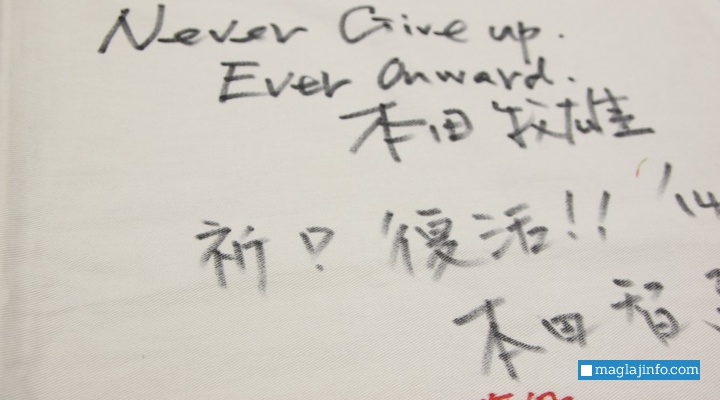 Never Give up.
Ever Onward.
本田
祈 復活!!
'14
本田
maglajinfo.com